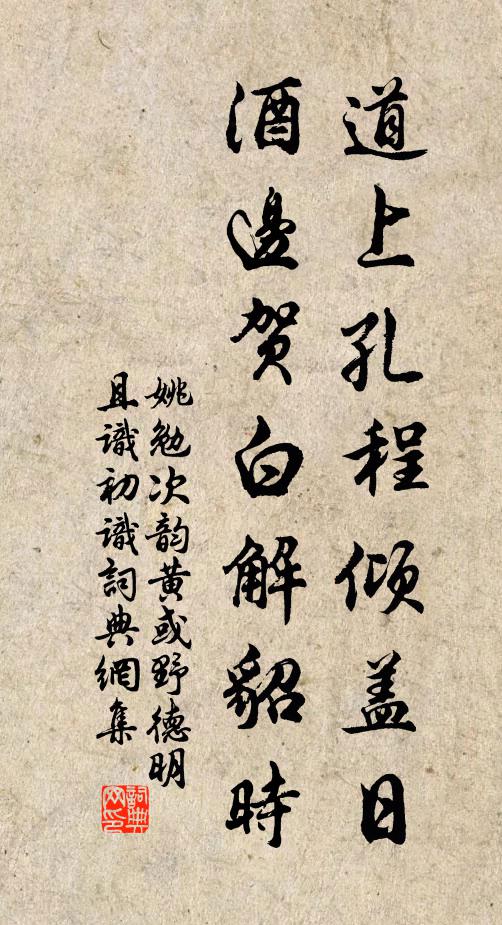 道上孔程倾盖日
酒边贺白解貂時
姚勉次韵黄或野德明
且識初識詞典網集
詞典网印